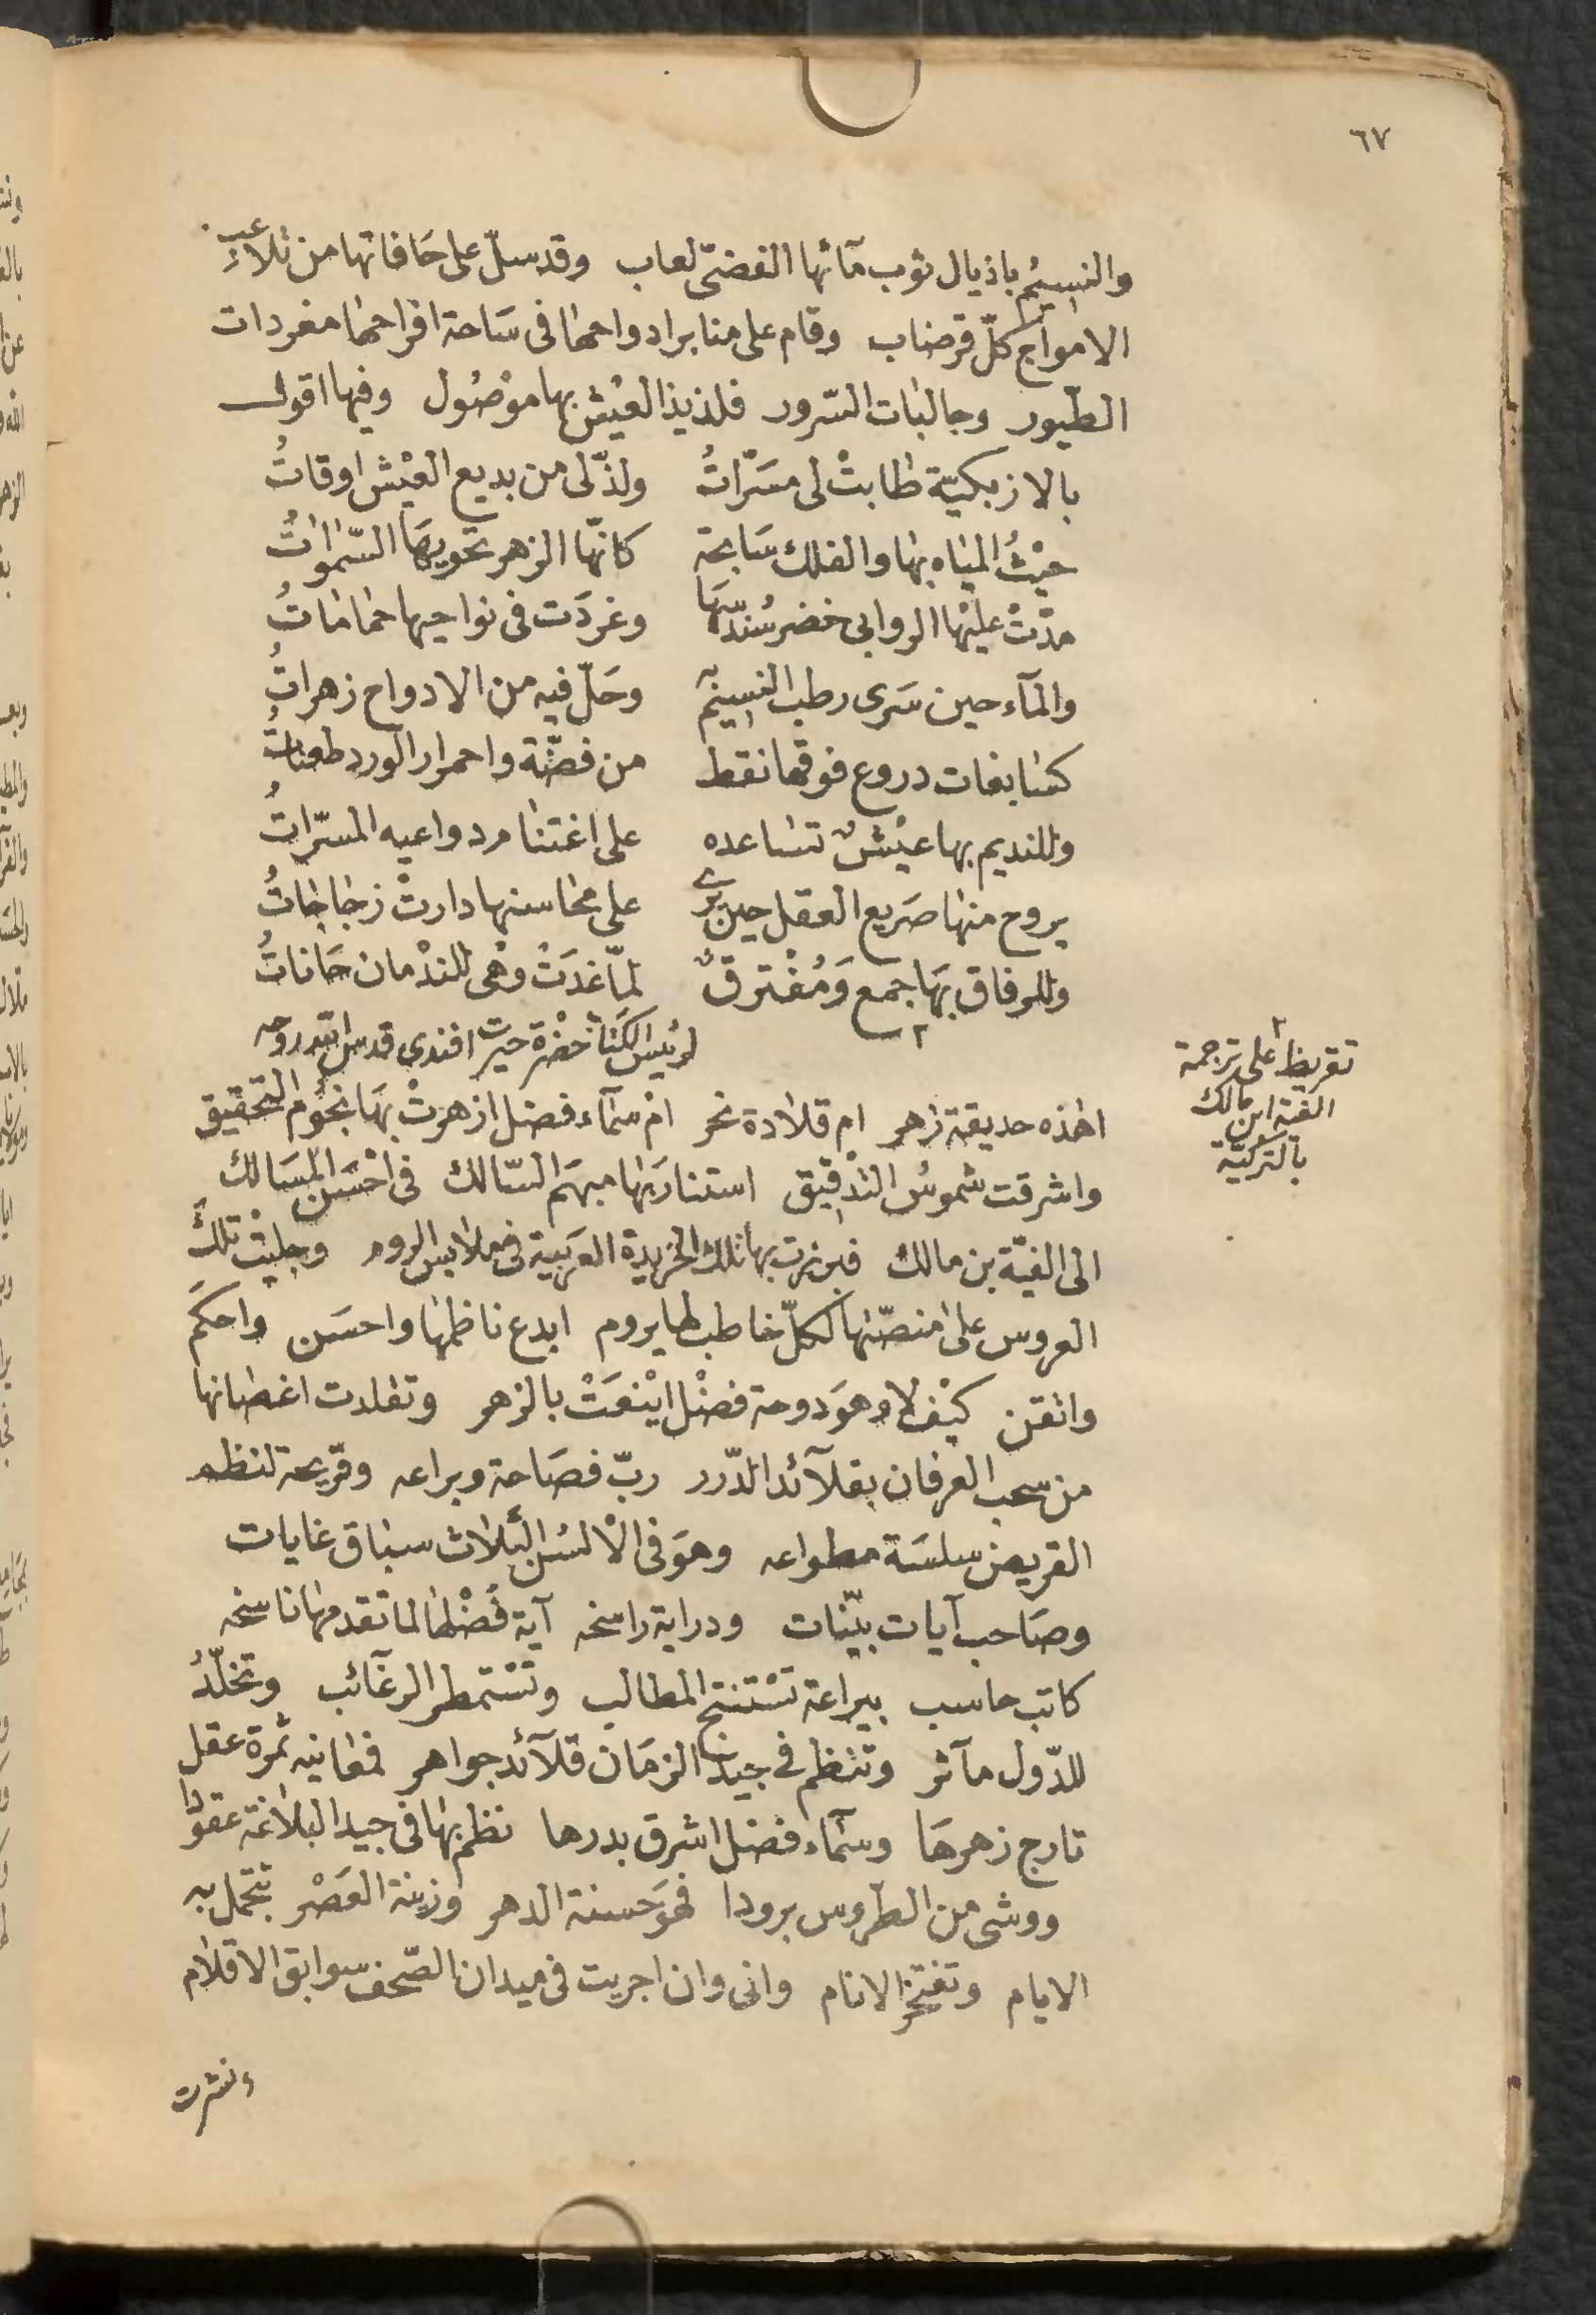 ٦٧
والنسيمُ باذيال ثوب مآئها الفضىّ لعاب وقد سلّ على حَافاتها من تلاعبِ
الامواج كلّ قرضاب وقام على منابر ادواحها فى سَاحة افراحها مغردات
الطيور وجالبات السّرور فلذيذ العيْش بها موْصُول وفيها اقول
بالازبكيّة طابتْ لى مسَرّاتُ ولذّلى من بديع العيْش اوقاتُ
حيْثُ المياه بها والفلك سَابحة كانّها الزهر تحويهَا السّمواتُ
مدّتْ عليْها الروابى خضر سُندسهَا وغردَت فى نواحيها حماماتُ
والمآء حين سَرى رطب النسيم بہ وحَلّ فيه من الادواح زهراتُ
كسابغات دروع فوقها نقط من فضّة واحمرار الورد طعناتُ
وللنديم بها عيْشٌ تساعده على اغتنام دواعيه المسرّاتُ
يروح منها صَريع العقل حين يرے على محاسنها دارتْ زجاجاتُ
وللرفاق بهَا جمع وَمُفْترقٌ لمّا غدَتْ وهْى للندْمان حَاناتُ
٢
لرئيس الكتّا حضْرة حيرت افندى قدس الله روحه
٢
تقريظ على ترجمة
الفية ابن مالك
بالتركيّة
اهذه حديقة زهر ام قلادة نحر امْ سمآء فضل ازهرتْ بهَا نجُوم التحقيق
واشرقت شموسُ التدْقيق استنارَ بها مبهَم السّالك فى احْسَن المسَالك
الى الفيّة بن مالك فبرزت بها تلك الخريدة العرَبية فى ملابس الروم وجليتْ تلك
العروس على منصّتها لكلّ خاطب لها يروم ابدع ناظمها واحسَن واحكَم
واتقن كيْف لا وهوَ دوحة فضْل ايْنعَتْ بالزهر وتقلدت اغصانها
من سحب العرفان بقلآئد الدّرر ربّ فصَاحة وبراعه وقريحة لنظم
القريض سلسَة مطواعه وهوَ فى الْالسُن الثلاث سباق غايات
وصَاحب آيات بيّنات ودراية راسخه آية فضْلها لما تقدمها ناسخه
كاتب حاسب بيراعة تسْتنتج المطالب وتسْتمطر الرغآئب وتخلّدُ
للدّول مآثر وتنظم فى جيد الزمَان قلآئد جواهر فمعانيه ثمرة عقل
تارج زهرهَا وسمآء فضل اشرق بدرها نظم بها فى جيد البلاغة عقودا
ووشى من الطروس برودا فهوَ حسنة الدهر وزينة العَصْر تتجمل به
الايام وتفتخر الانام وانى وان اجريت فى ميدان الصّحف سوابق الاقلام
ونشرت